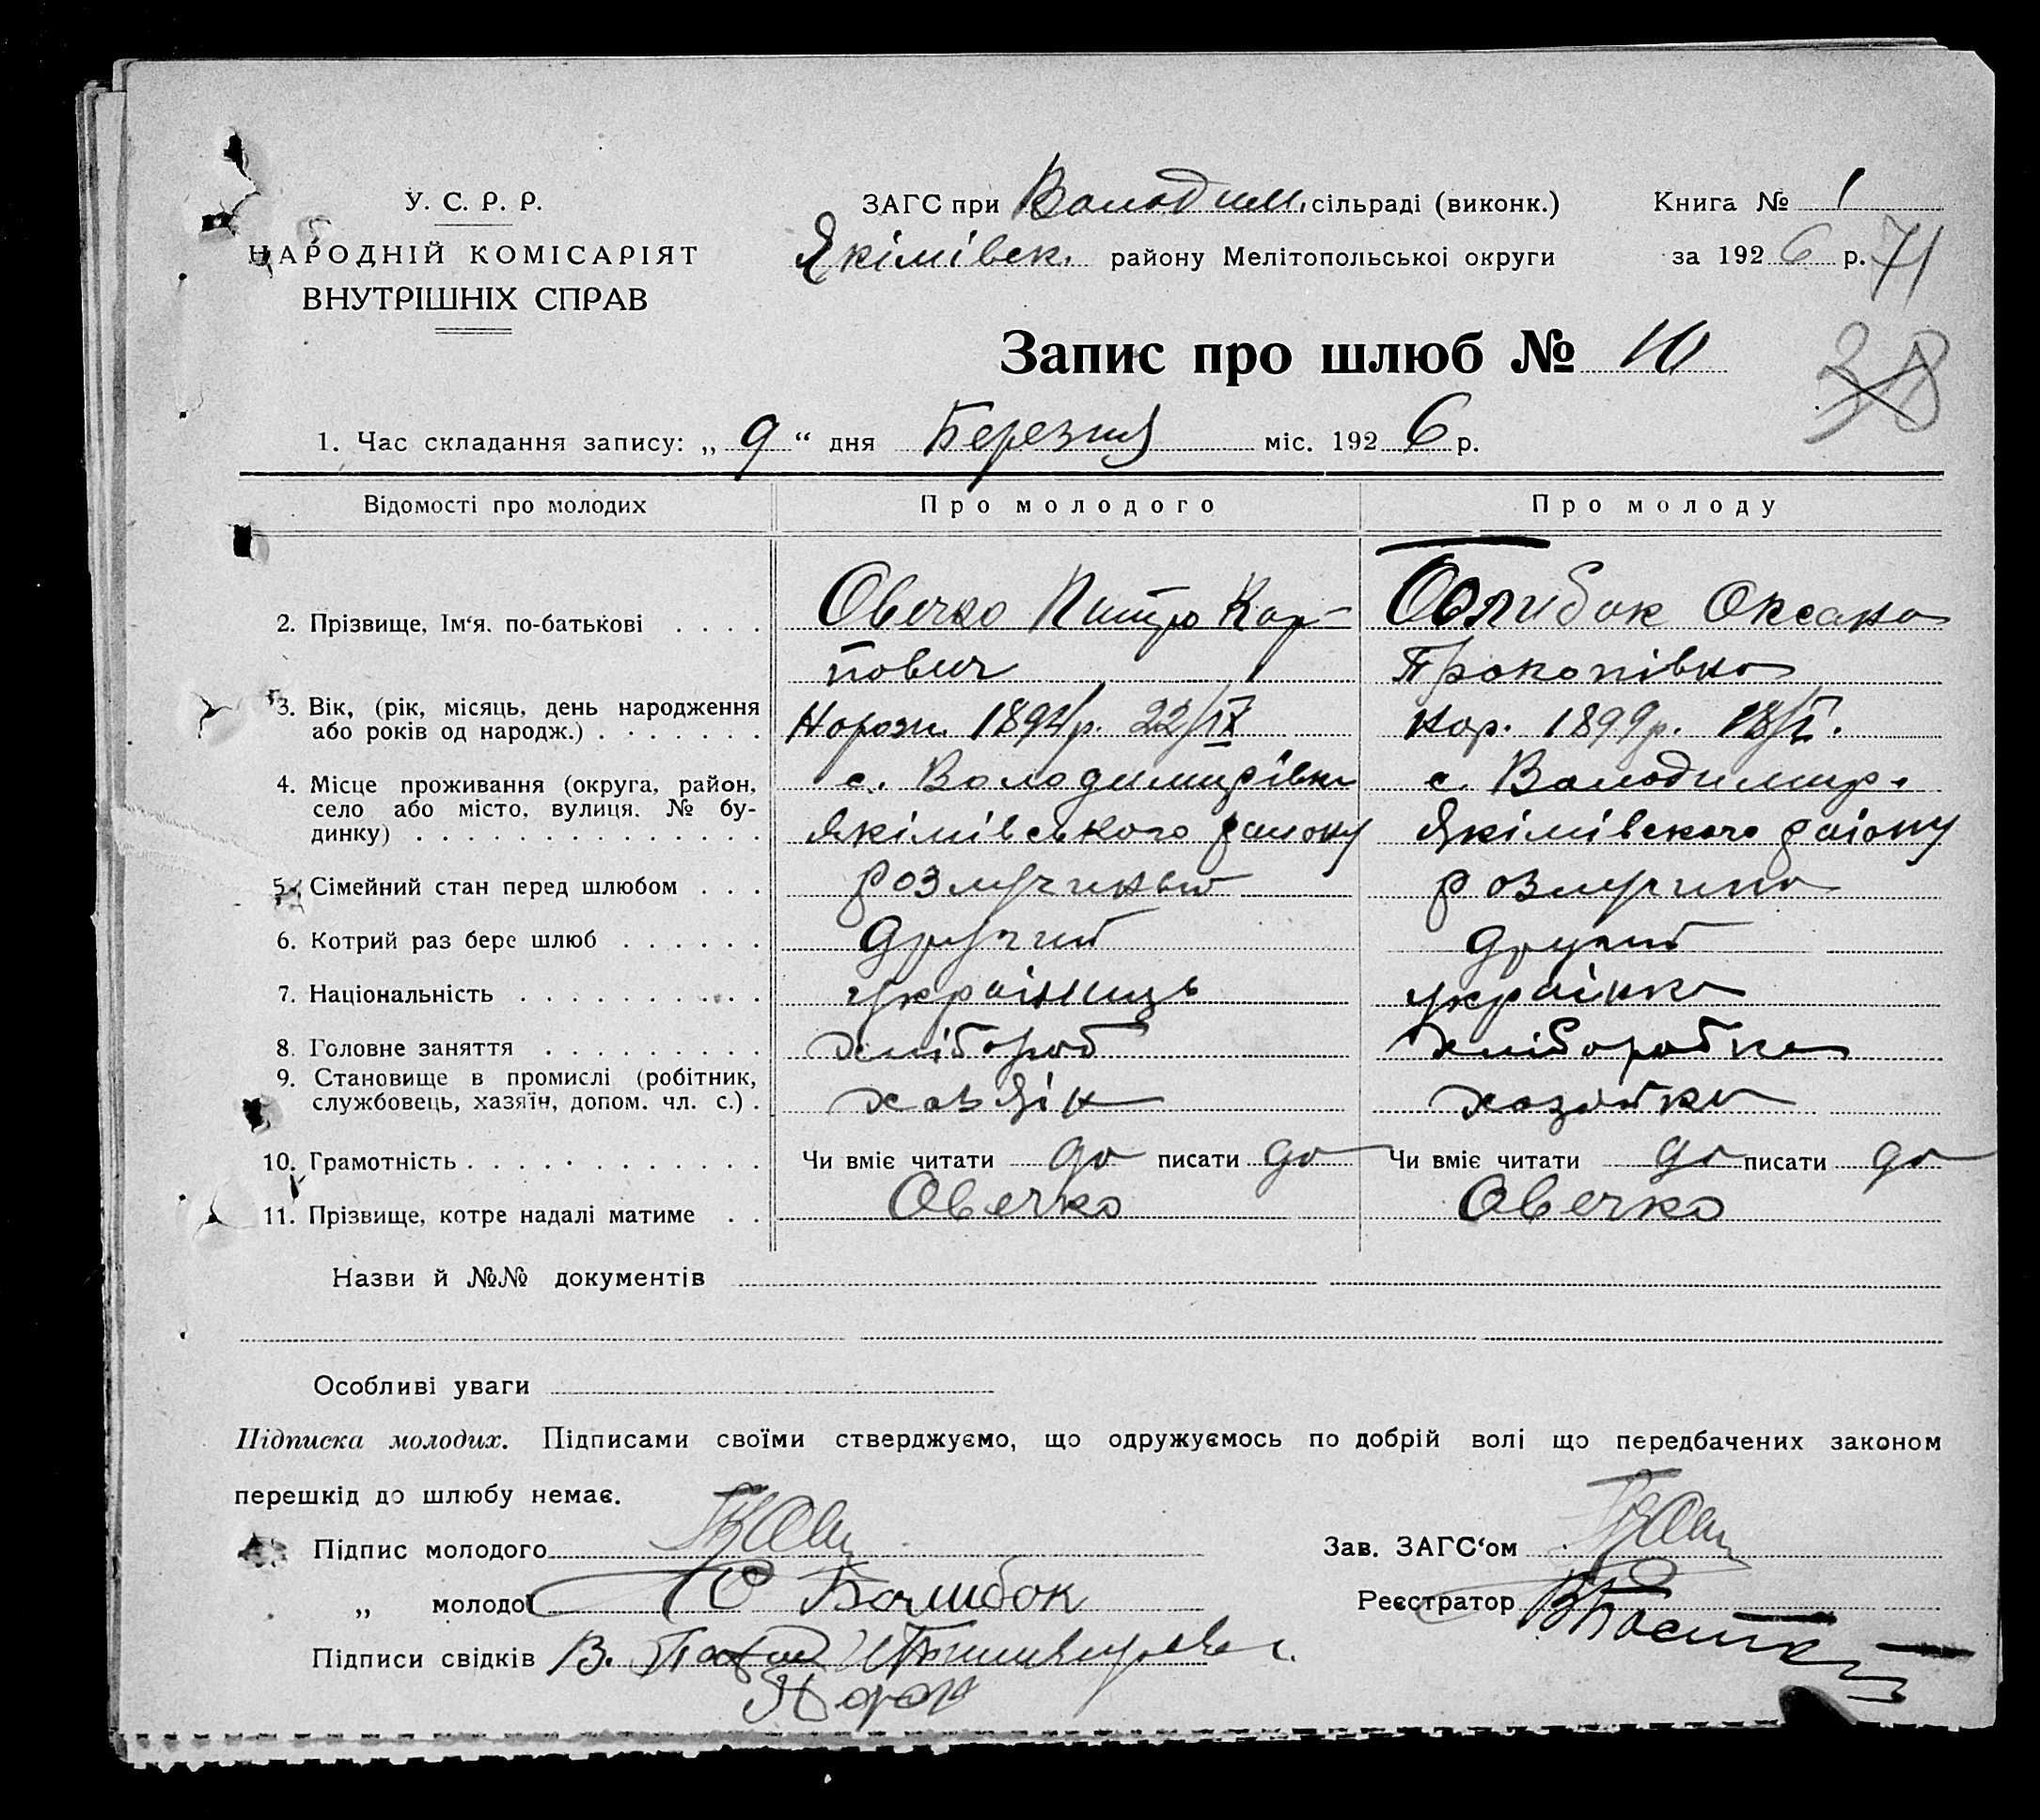 У. С. Р. Р.
НАРОДНІЙ КОМІСАРІЯТ
ВНУТРІШНІХ СПРАВ
ЗАГС при Володим. сільраді (виконк.)
Якімівск. району Мелітопольськоі округи
Книга № 1
за 1926 р. 71
Запис про шлюб № 10
38
1. Час складання запису: „ 9 “ дня Березня міс. 1926 р.
Відомості про молодих Про молодого Про молоду
2. Прізвище, Ім‘я, по-батькові . . . . Овечко Питро Кар- Оксана
пович Прокопівна
3. Вік, (рік, місяць, день народження Нарож. 1894р. 22/IX нар. 1899р. 18/I.
або років од народж.) . . . . . . .
4. Місце проживання (округа, район, с. Володимирівка с. Володимир.
село або місто, вулиця. № бу-
динку) . . . . . . . . . . . . . . Якімівського району Якімівского раіону
5. Сімейний стан перед шлюбом . . . розлучиный розлучина
6. Котрий раз бере шлюб . . . . . . Другий другий
7. Національність . . . . . . . . . . україниць українка
8. Головне заняття . . . . . . . . . хлібороб хлiборобка
9. Становище в промислі (робітник, хазяін хозяйка
службовець, хазяїн, допом. чл. с.) .
10. Грамотність . . . . . . . . . . . . Чи вміє читати да писати да Чи вміє читати да писати да
11. Прізвище, котре надалі матиме . . Овечко Овечко
Назви й №№ документів
Особливі уваги
Підписка молодих. Підписами своїми стверджуємо, що одружуємось по добрій волі що передбачених законом
перешкід до шлюбу немає.
Підпис молодого Зав. ЗАГС‘ом
„ молодої О Балибок Реєстратор
Підписи свідків В.